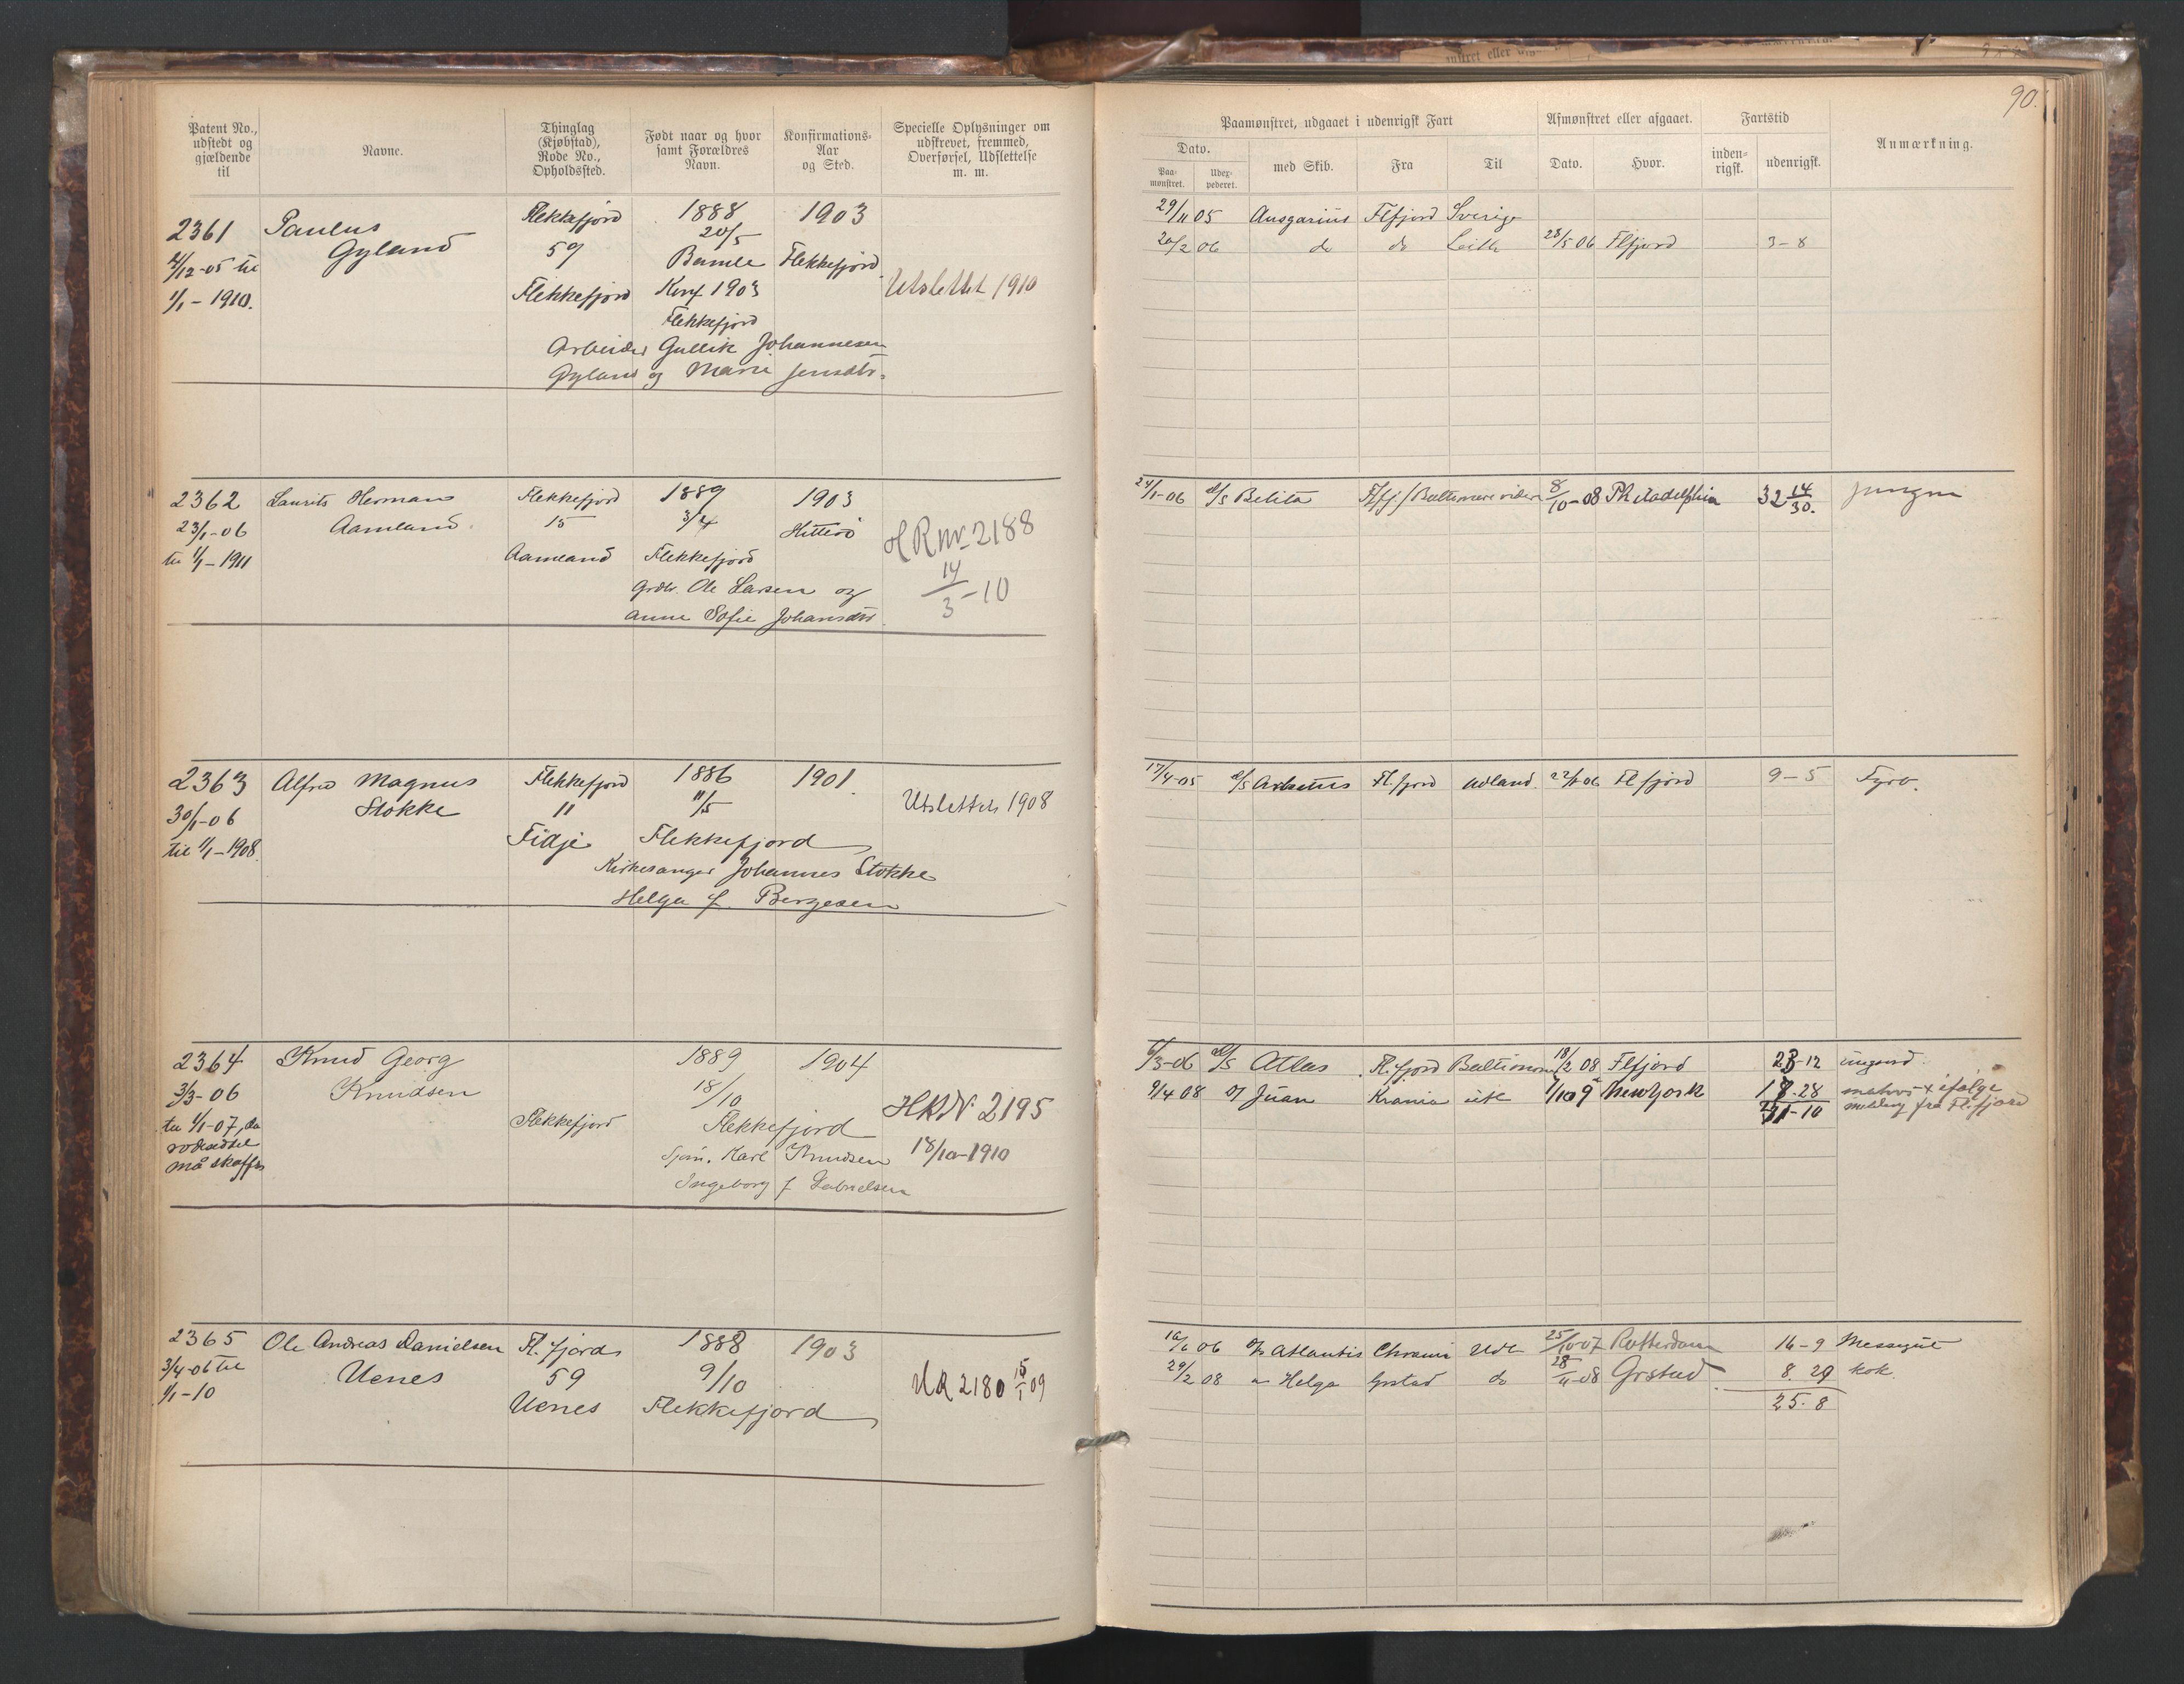 90.
Patent No., udstedt og gjældende til
Navne.
Thinglag (Kjøbstad), Rode No., Opholdssted.
Født naar og hvor samt Forældres Navn.
Konfirmations-Aar og Sted.
Specielle Oplysninger om udskrevet, fremmed, Overførsel, Udslettelse m. m.
Paamønstret, udgaaet i udenrigsk Fart
Afmønstret eller afgaaet.
Fartstid
Anmærkning.
Dato.
Paa-mønstret.
Udex-pederet.
med Skib.
Fra
Til
Dato.
Hvor.
inden-rigsk.
udenrigsk.
2361 Paulus Flekkefjord 1888 1903
4/12-05 til Gyland 59 20/5
1/1-1910. Flekkefjord Bamle Flekkefjord
Konf 1903 Utslettet 1910
Flekkefjord
Arbeider Gullik Johannesen
Gyland og Marie Jensdtr.
29/11 05 Ansgarius Flfjord Sverige
20/2 06 do do Leith 28/5 06 Flfjord 3-8
2362 Laurits Herman Flekkefjord 1889 1903
23/1-06 Aamland 15 3/4 Hitterö
til 1/1-1911 Aamland Flekkefjord HR nr 2188
Grdbr. Ole Larsen og 14/3-10
Anne Sofie Johansdtr.
24/1-06 d/s Belita Flfj. Baltimore videre 8/10-08 Philadelphia 32 14/30. jungm
2363 Alfred Magnus Flekkefjord 1886 1901.
30/1-06 Stokke 11 11/5 Utslettet 1908
til 1/1-1908. Fidje Flekkefjord
Kirkesanger Johannes Stokke
Helga f. Bergesen
17/4-05 d/s Fl.fjord Udland. 22/1 06 Flfjord 9-5 Fyrb.
2364 Knud Georg 1889 1904
3/3-06 Knudsen 18/10
til 1/1-07, da Flekkefjord Flekkefjord HRN 2195
må skaffes Sjøm. Karl Knudsen 18/10-1910
Ingeborg f Gabrielsen
6/3-06 d/s Atlas Fl.fjord Baltimore 18/2 08 Flfjord 23-12 ungmd.
9/4 08 Juan Krania utl 7/10 9 Newyork 17.28 matros ifølge
41-10 melding fra Fl.fjord
2365 Ole Andreas Danielsen Fl.fjord 1888 1903
3/4-06 til Uenes 59 9/10 UR 2180 15/1 09
1/1-10 Uenes Flekkefjord
16/6 06 Atlantis Chrania Udl 25/10 07 Rotterdam 16-9 Messegut
29/2 08 Helga Grstad do 28/11-08 Grstad 8.29 kok.
25.8